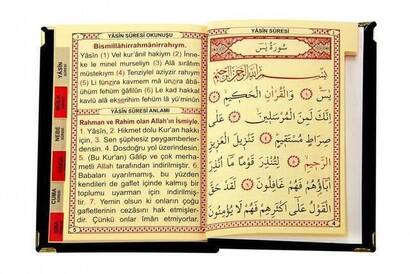 YÂSİN SÛRESİ OKUNUŞU
Bismillâhirrahmânirrahıym.
Yâsîn (1) Vel kur'ânil hakiym (2) İnne-
ke le minel murseliyn (3) Alâ sırâtım
müstekıym (4) Tenziylel aziyzir rahıym
(5) Li tünzira kavmem mâ ünzira âbâ-
ühüm fehüm ğâfilûn (6) Le kad hakkal
kavlü alâ ekserihim fehüm lâ yu'minûn
YÂSÎN SÛRESİ ANLAMI
Rahman ve Rahim olan Allah'ın İsmiyle.
1. Yâsîn, 2. Hikmet dolu Kur'an hakkı
için, 3. Sen şüphesiz peygamberler-
densin. 4. Dosdoğru yol üzerindesin.
5. (Bu Kur'an) Gâlip ve çok merha-
metli Allah tarafından indirilmiştir. 6.
Babaları uyarılmamış, bu yüzden
kendileri de gaflet içinde kalmış bir
toplumu uyarman için indirilmiş-
tir. 7. Yemin olsun ki onların çoğu
gafletlerinin cezasını hak etmişler-
dir. Çünkü onlar îman etmiyorlar.
5
YÂSİN
NEBE
CUMA
YÂSÎN SÛRESİ
سُورَةُ يٰسٓ
بِسْمِ اللّٰهِ الرَّحْمٰنِ الرَّحِيمِ
يٰسٓ ﴿١﴾ وَالْقُرْاٰنِ الْحَكِيمِ ﴿٢﴾
اِنَّكَ لَمِنَ الْمُرْسَلِينَ ﴿٣﴾ عَلٰى
صِرَاطٍ مُسْتَقِيمٍ ﴿٤﴾ تَنْزِيلَ الْعَزِيزِ
الرَّحِيمِ ﴿٥﴾ لِتُنْذِرَ قَوْمًا مَا اُنْذِرَ
اٰبَاؤُهُمْ فَهُمْ غَافِلُونَ ﴿٦﴾ لَقَدْ حَقَّ
الْقَوْلُ عَلٰى اَكْثَرِهِمْ فَهُمْ لَا يُؤْمِنُونَ
4